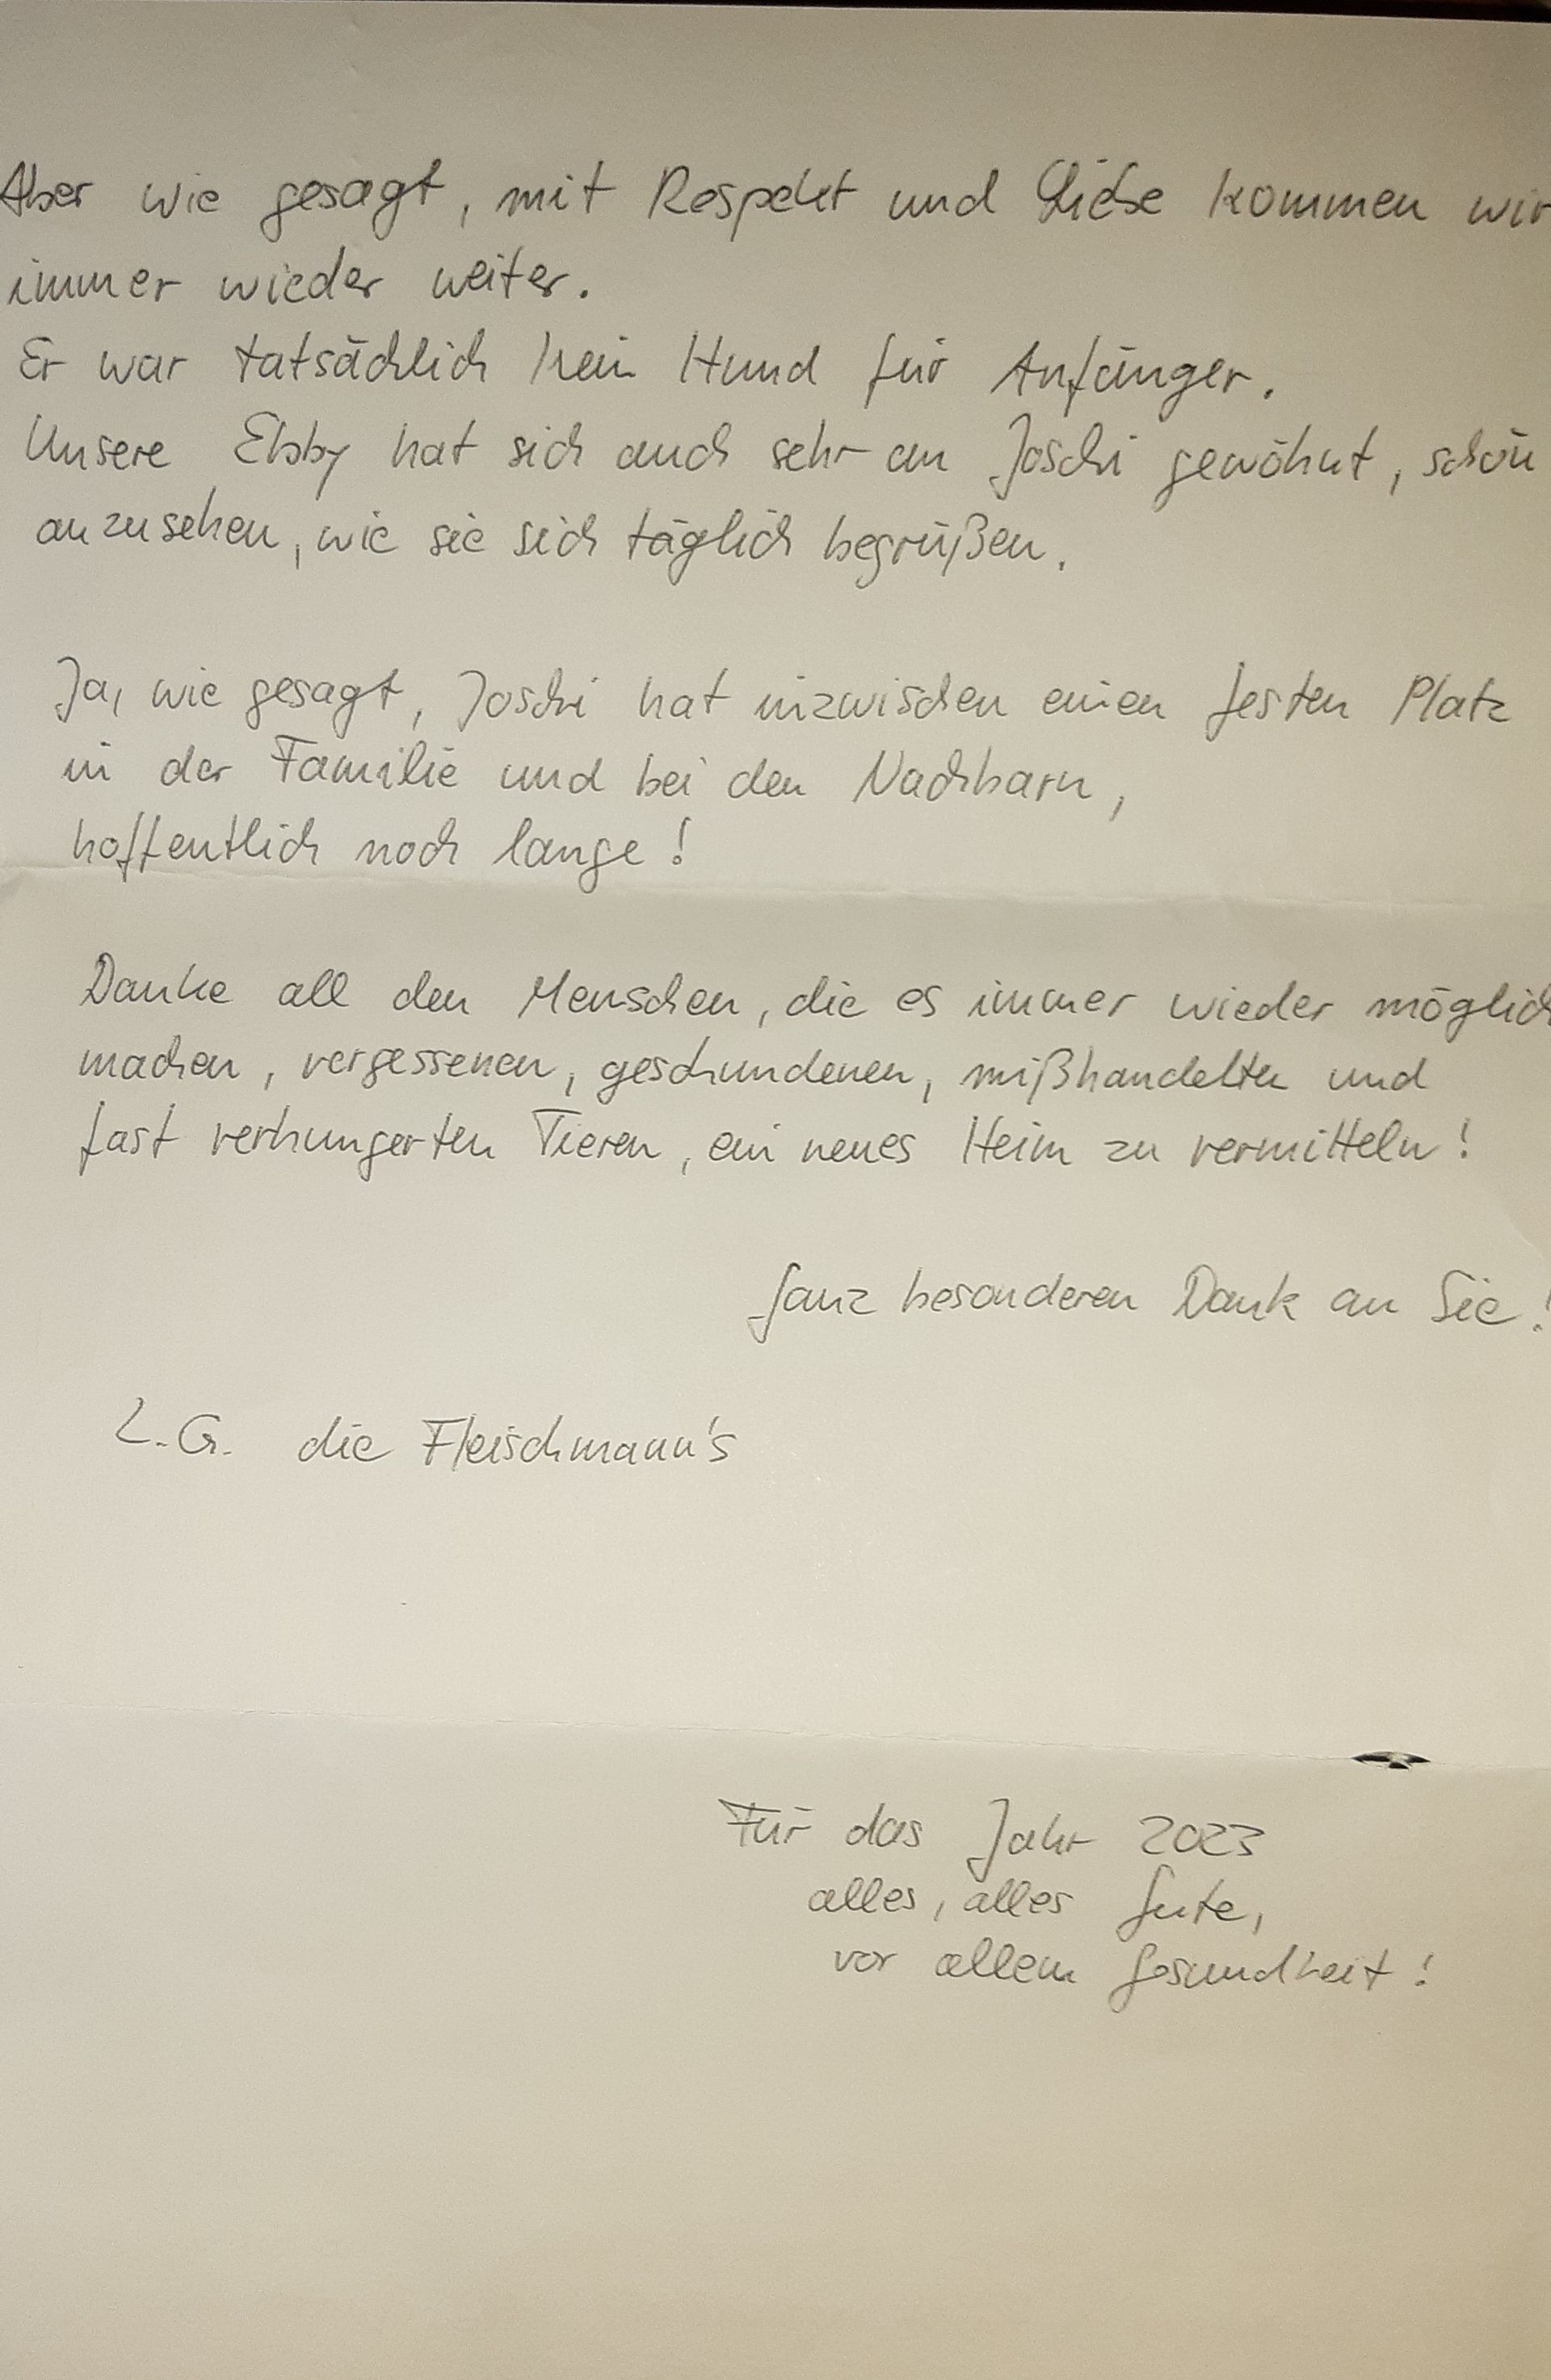 Aber wie gesagt, mit Respekt und Liebe kommen wir
immer wieder weiter.
Er war tatsächlich kein Hund für Anfänger.
Unsere Ebby hat sich auch sehr an Joschi gewöhnt, schön
anzusehen, wie sie sich täglich begrüßen.
Ja, wie gesagt, Joschi hat inzwischen einen festen Platz
in der Familie und bei den Nachbarn,
hoffentlich noch lange!
Danke all den Menschen, die es immer wieder möglich
machen, vergessenen, geschundenen, mißhandelten und
fast verhungerten Tieren, ein neues Heim zu vermitteln!
Ganz besonderen Dank an Sie!
L.G. die Fleischmann's
Für das Jahr 2023
alles, alles Gute,
vor allem Gesundheit!